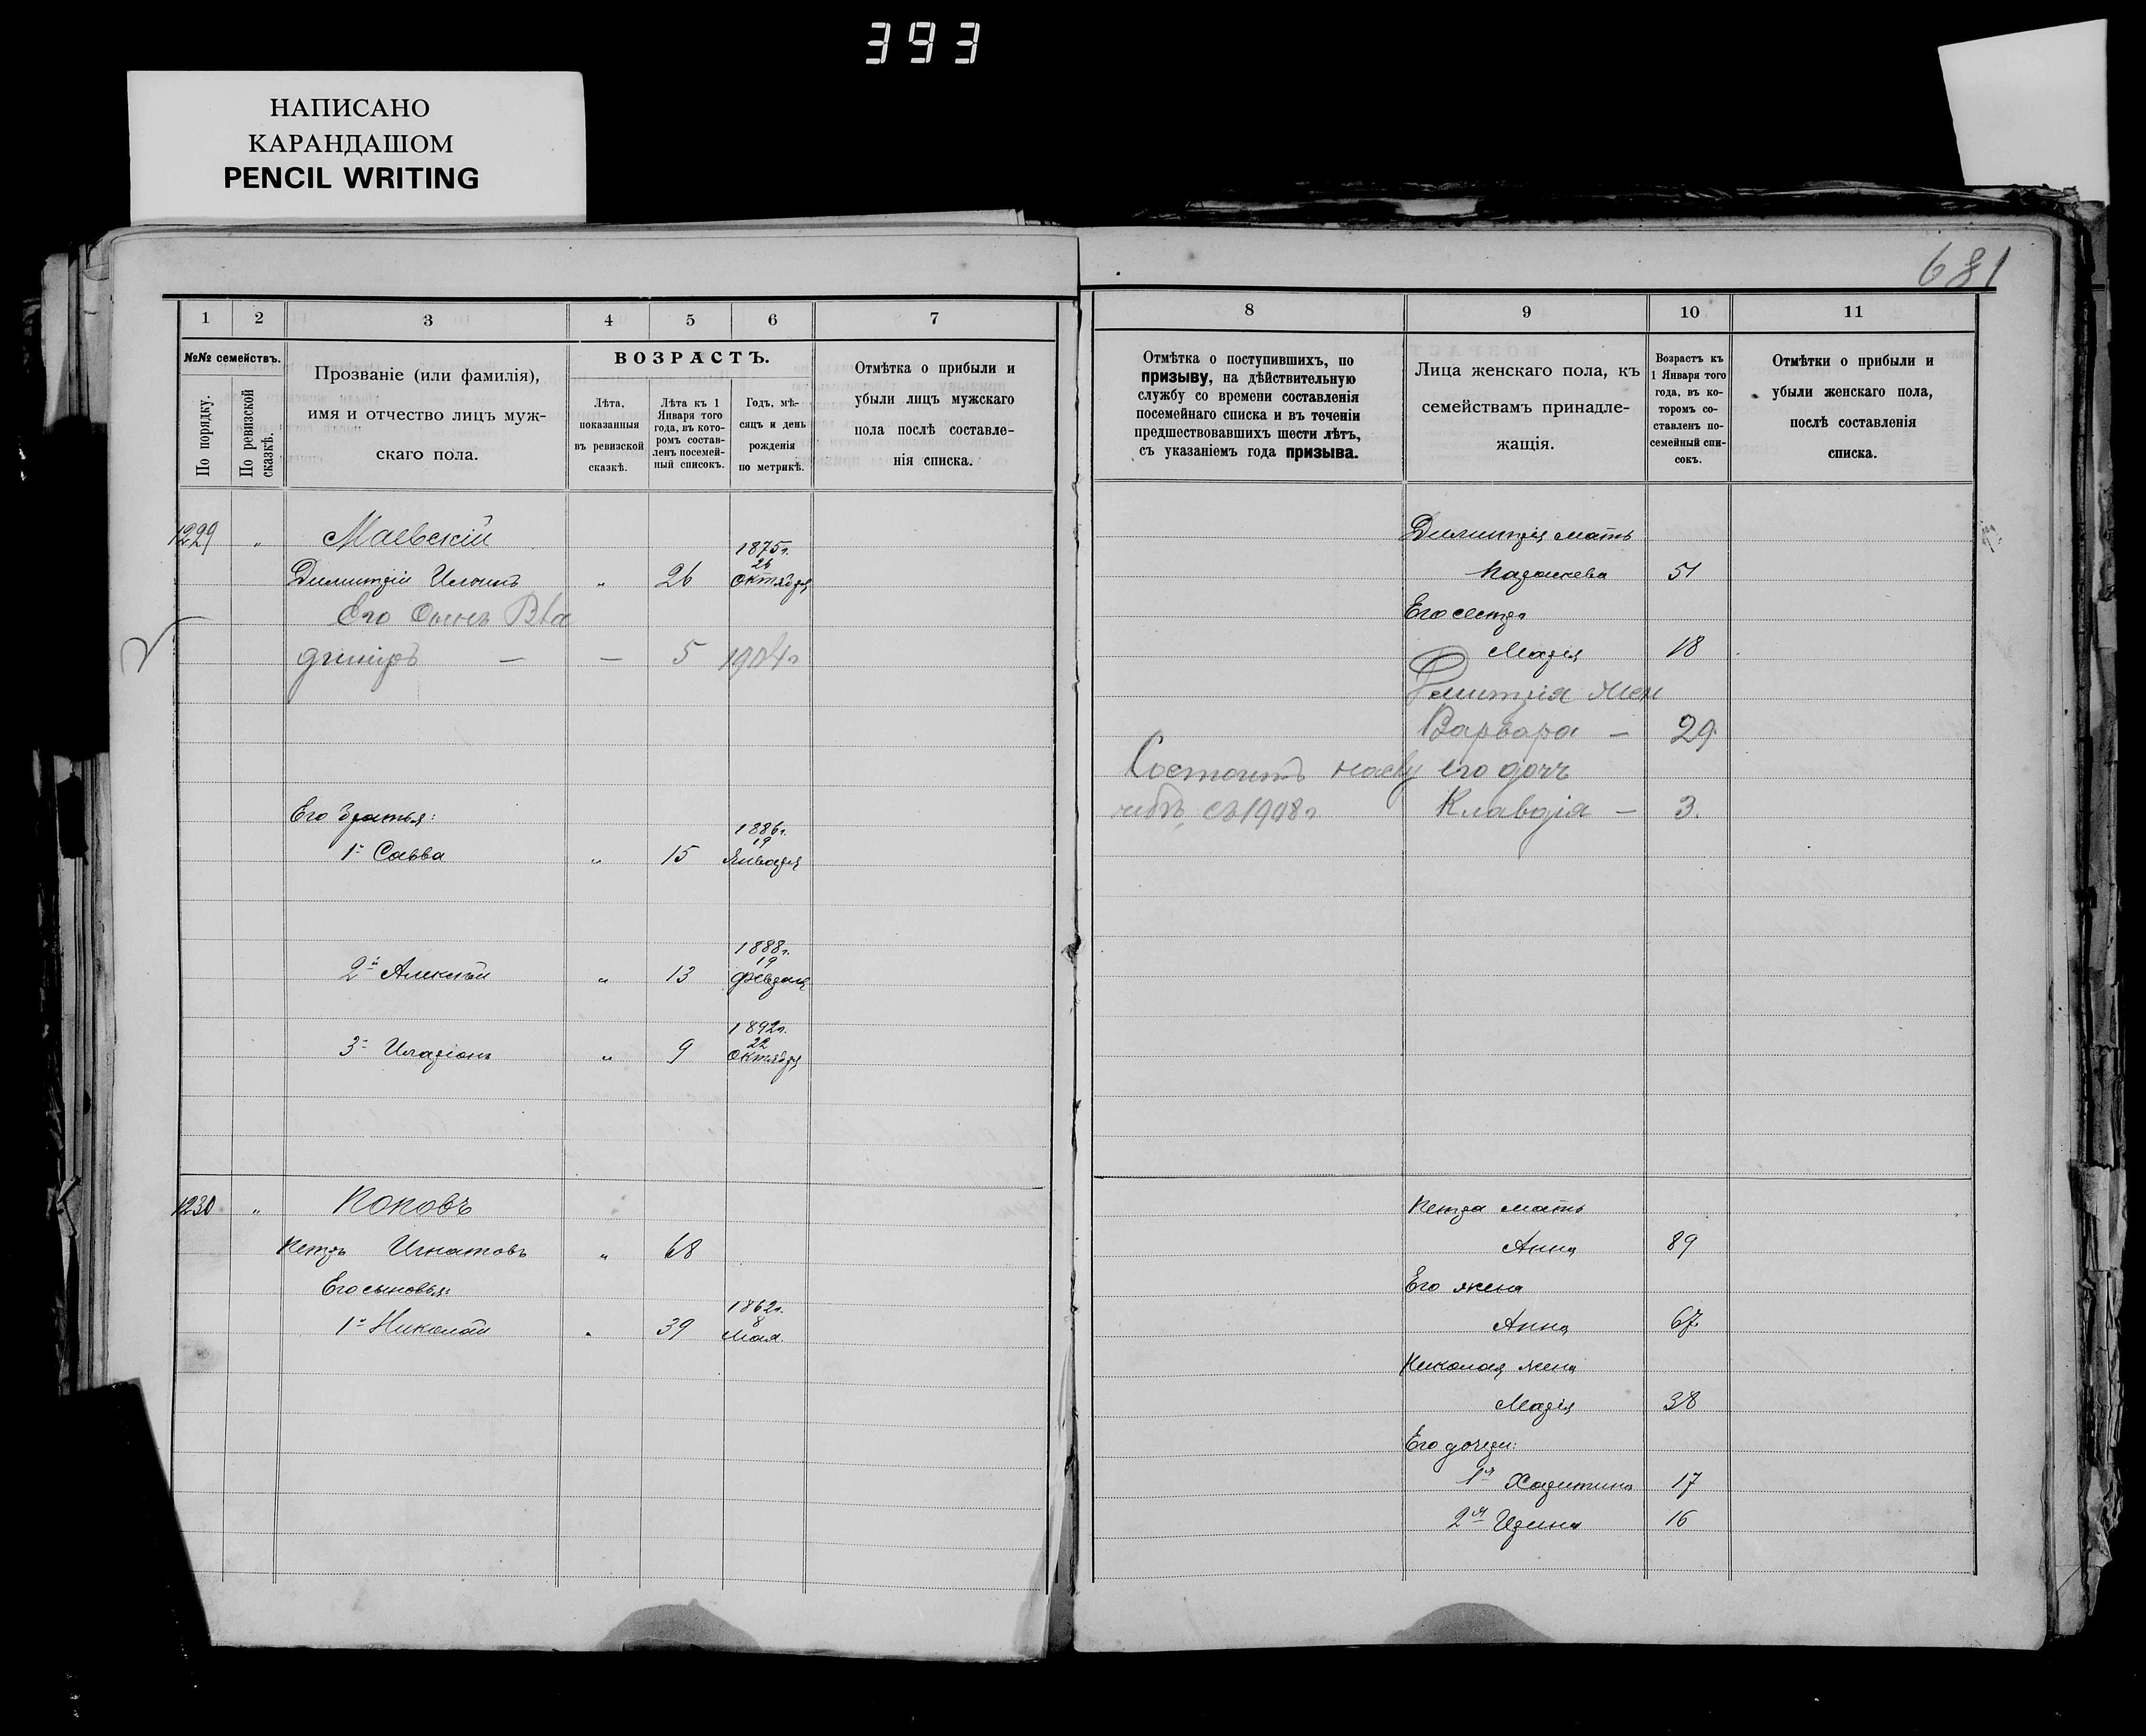 393
НАПИСАНО
КАРАНДАШОМ
PENCIL WRITING
681
1 2 3 4 5 6 7
№№ семействъ.
По порядку.
По ревизской сказкѣ.
Прозваніе (или фамилія),
имя и отчество лицъ муж-
скаго пола.
ВОЗРАСТЪ.
Лѣта,
показанныя
въ ревизской
сказкѣ.
Лѣта къ 1
Января того
года, въ кото-
ромъ состав-
ленъ посемей-
ный списокъ.
Годъ, мѣ-
сяцъ и день
рожденія
по метрикѣ.
Отмѣтка о прибыли и
убыли лицъ мужскаго
пола послѣ составле-
нія списка.
1229 „ Маевскій
1875 г.
26
Димитрій Иловъ „ 26 Октября
Его сынъ Вла
димiръ — — 5 1904 г
Его братья:
1886 г.
19
1й Савва „ 15 Января
1888 г.
19
2й Алексѣй „ 13 Февраля
1892 г.
22
3й Иларіонъ „ 9 Октября
1230 „ Коковъ
Петръ Игнатовъ „ 68
Его сыновья:
1862 г.
8
1й Николай „ 39 Мая
8 9 10 11
Отмѣтка о поступившихъ, по
призыву, на дѣйствительную
службу со времени составленія
посемейнаго списка и въ теченіи
предшествовавшихъ шести лѣтъ,
съ указаніемъ года призыва.
Лица женскаго пола, къ
семействамъ принадле-
жащія.
Возрастъ къ
1 Января того
года, въ ко-
торомъ со-
ставленъ по-
семейный спи-
сокъ.
Отмѣтки о прибыли и
убыли женскаго пола,
послѣ составленія
списка.
Димитрія мать
51
Его сестра
Марія 18
Дмитрія жен
Варвара — 29
Состоитъ его дочь
съ 1908 г Клавдія — 3.
Петра мать
Анна 89
Его жена
Анна 67
Николая жена
Марія 38
Его дочери:
1я Харитина 17
2я Ирина 16